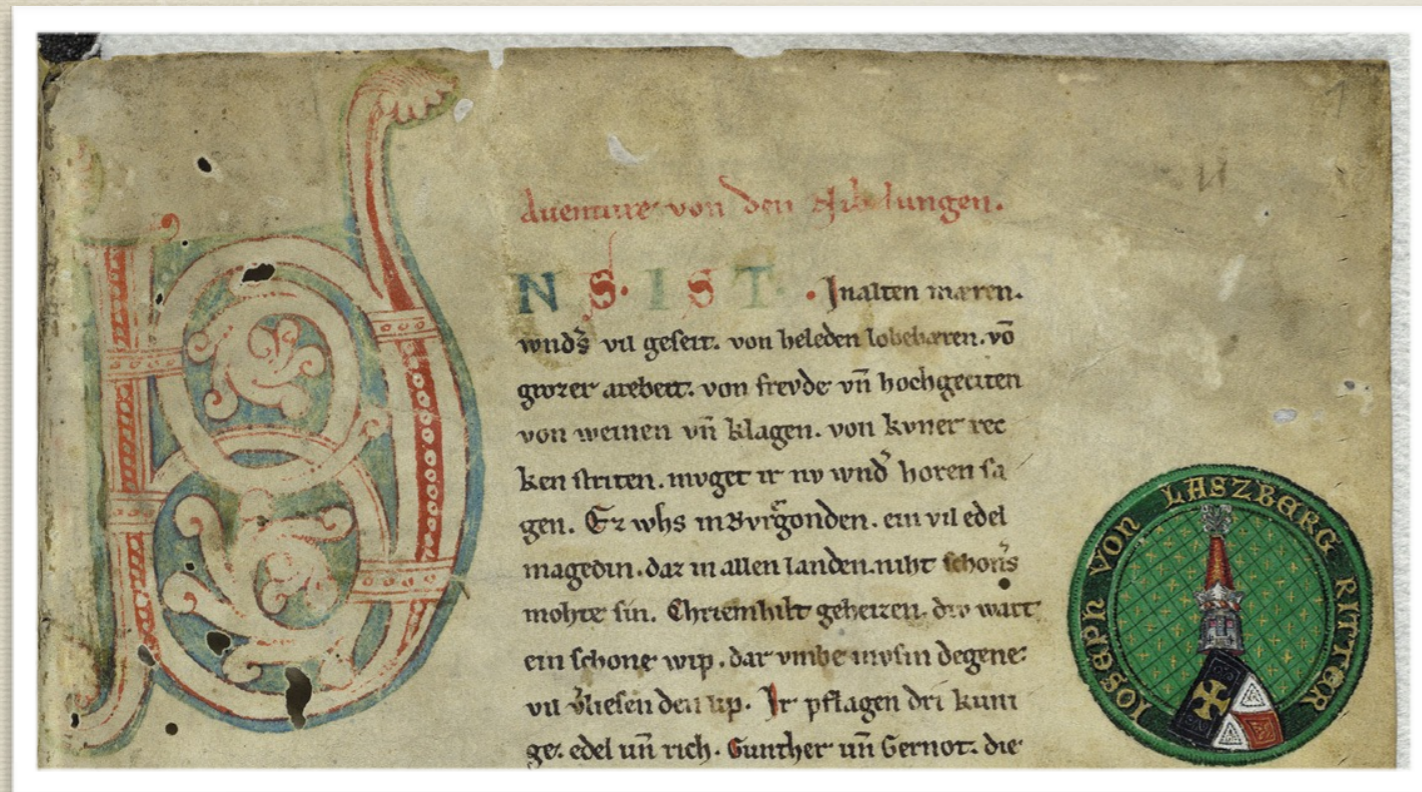 Auenture von den Nibelungen.
N S. I S T. Jn alten mæren.
wnds̄ vil geseit. von heleden lobebæren. võ
grozer arebeit. von frevde vn̄ hochgeciten
von weinen vn̄ klagen. von kvner rec
ken striten. mvget ir nv wnd̄ horen sa
gen. Ez whs in Bvrgonden. ein vil edel
magedin. daz in allen landen. niht schons̄
mohte sin. Chriemhilt geheizen. div wart
ein schone wip. dar vmbe mvsin degene
vil v̄liesen den lip. Ir pflagen dri kuni
ge. edel un̄ rich. Gunther un̄ Gernot. die
IOSEPH VON LASZBERG RITTER